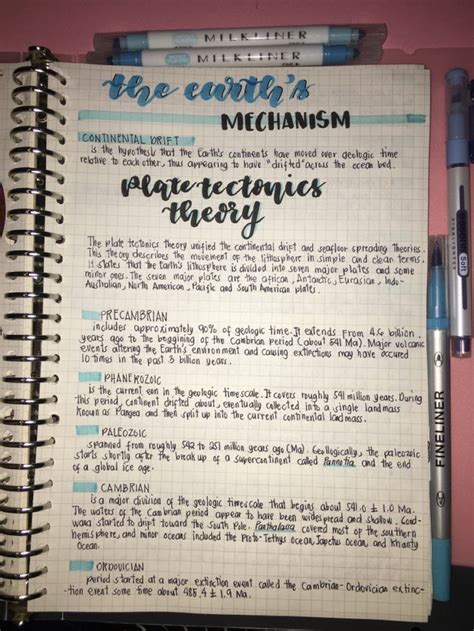 MILKLINER
MILKLINER
the earth's
MECHANISM
CONTINENTAL DRIFT
is the hypothesis that the Earth's continents have moved over geologic time
relative to each other, thus appearing to have "drifted" across the ocean bed.
plate tectonics
theory
The plate tectonics theory unified the continental drift and seafloor spreading theories.
This theory describes the movement of the lithosphere in simple and clear terms.
It states that the Earth's lithosphere is divided into seven major plates and some
minor ones. The seven major plates are the African, Antarctic, Eurasian, Indo-
Australian, North American, Pacific and South American plates.
PRECAMBRIAN
includes approximately 90% of geologic time. It extends from 4.6 billion
years ago to the beggining of the Cambrian Period (about 541 Ma). Major volcanic
events altering the Earth's environment and causing extinctions may have occured
10 times in the past 3 billion years.
PHANEROZOIC
is the current eon in the geologic timescale. It covers roughly 541 million years. During
this period, continent drifted about, eventually collected into a single landmass
known as Pangea and then split up into the current continental landmass.
PALEOZOIC
spanned from roughly 542 to 251 million years ago (Ma). Geologically, the paleozoic
starts shortly after the break up of a supercontinent called Pannotia and the end
of a global ice age.
CAMBRIAN
is a major division of the geologic timescale that begins about 541.0 ± 1.0 Ma.
The waters of the Cambrian period appear to have been widespread and shallow. Gond-
wana started to drift toward the South Pole. Panthalassa covered most of the southern
hemisphere, and minor oceans included the Proto-Tethys Ocean, Iapetus Ocean, and Khanty
Ocean.
ORDOVICIAN
period started at a major extinction event called the Cambrian-Ordovician extinc-
-tion event some time about 485.4 ± 1.9 Ma.
Soft
FINELINER